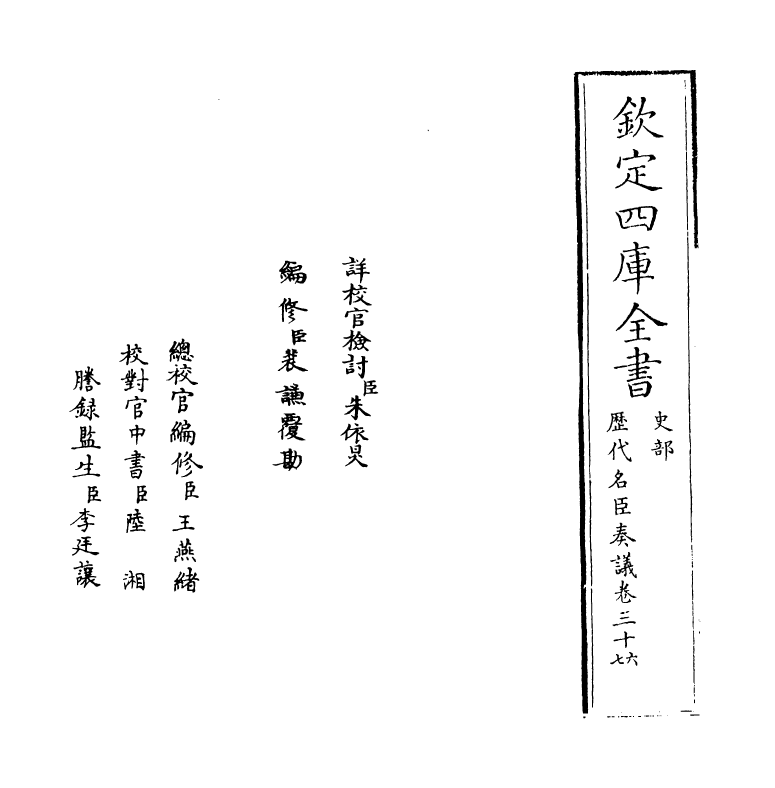 欽定四庫全書
史部
歷代名臣奏議卷三十六七
詳校官檢討臣朱依炅
編修臣裴謙覆勘
總校官編修臣王燕緒
校對官中書臣陸湘
謄錄監生臣李廷讓